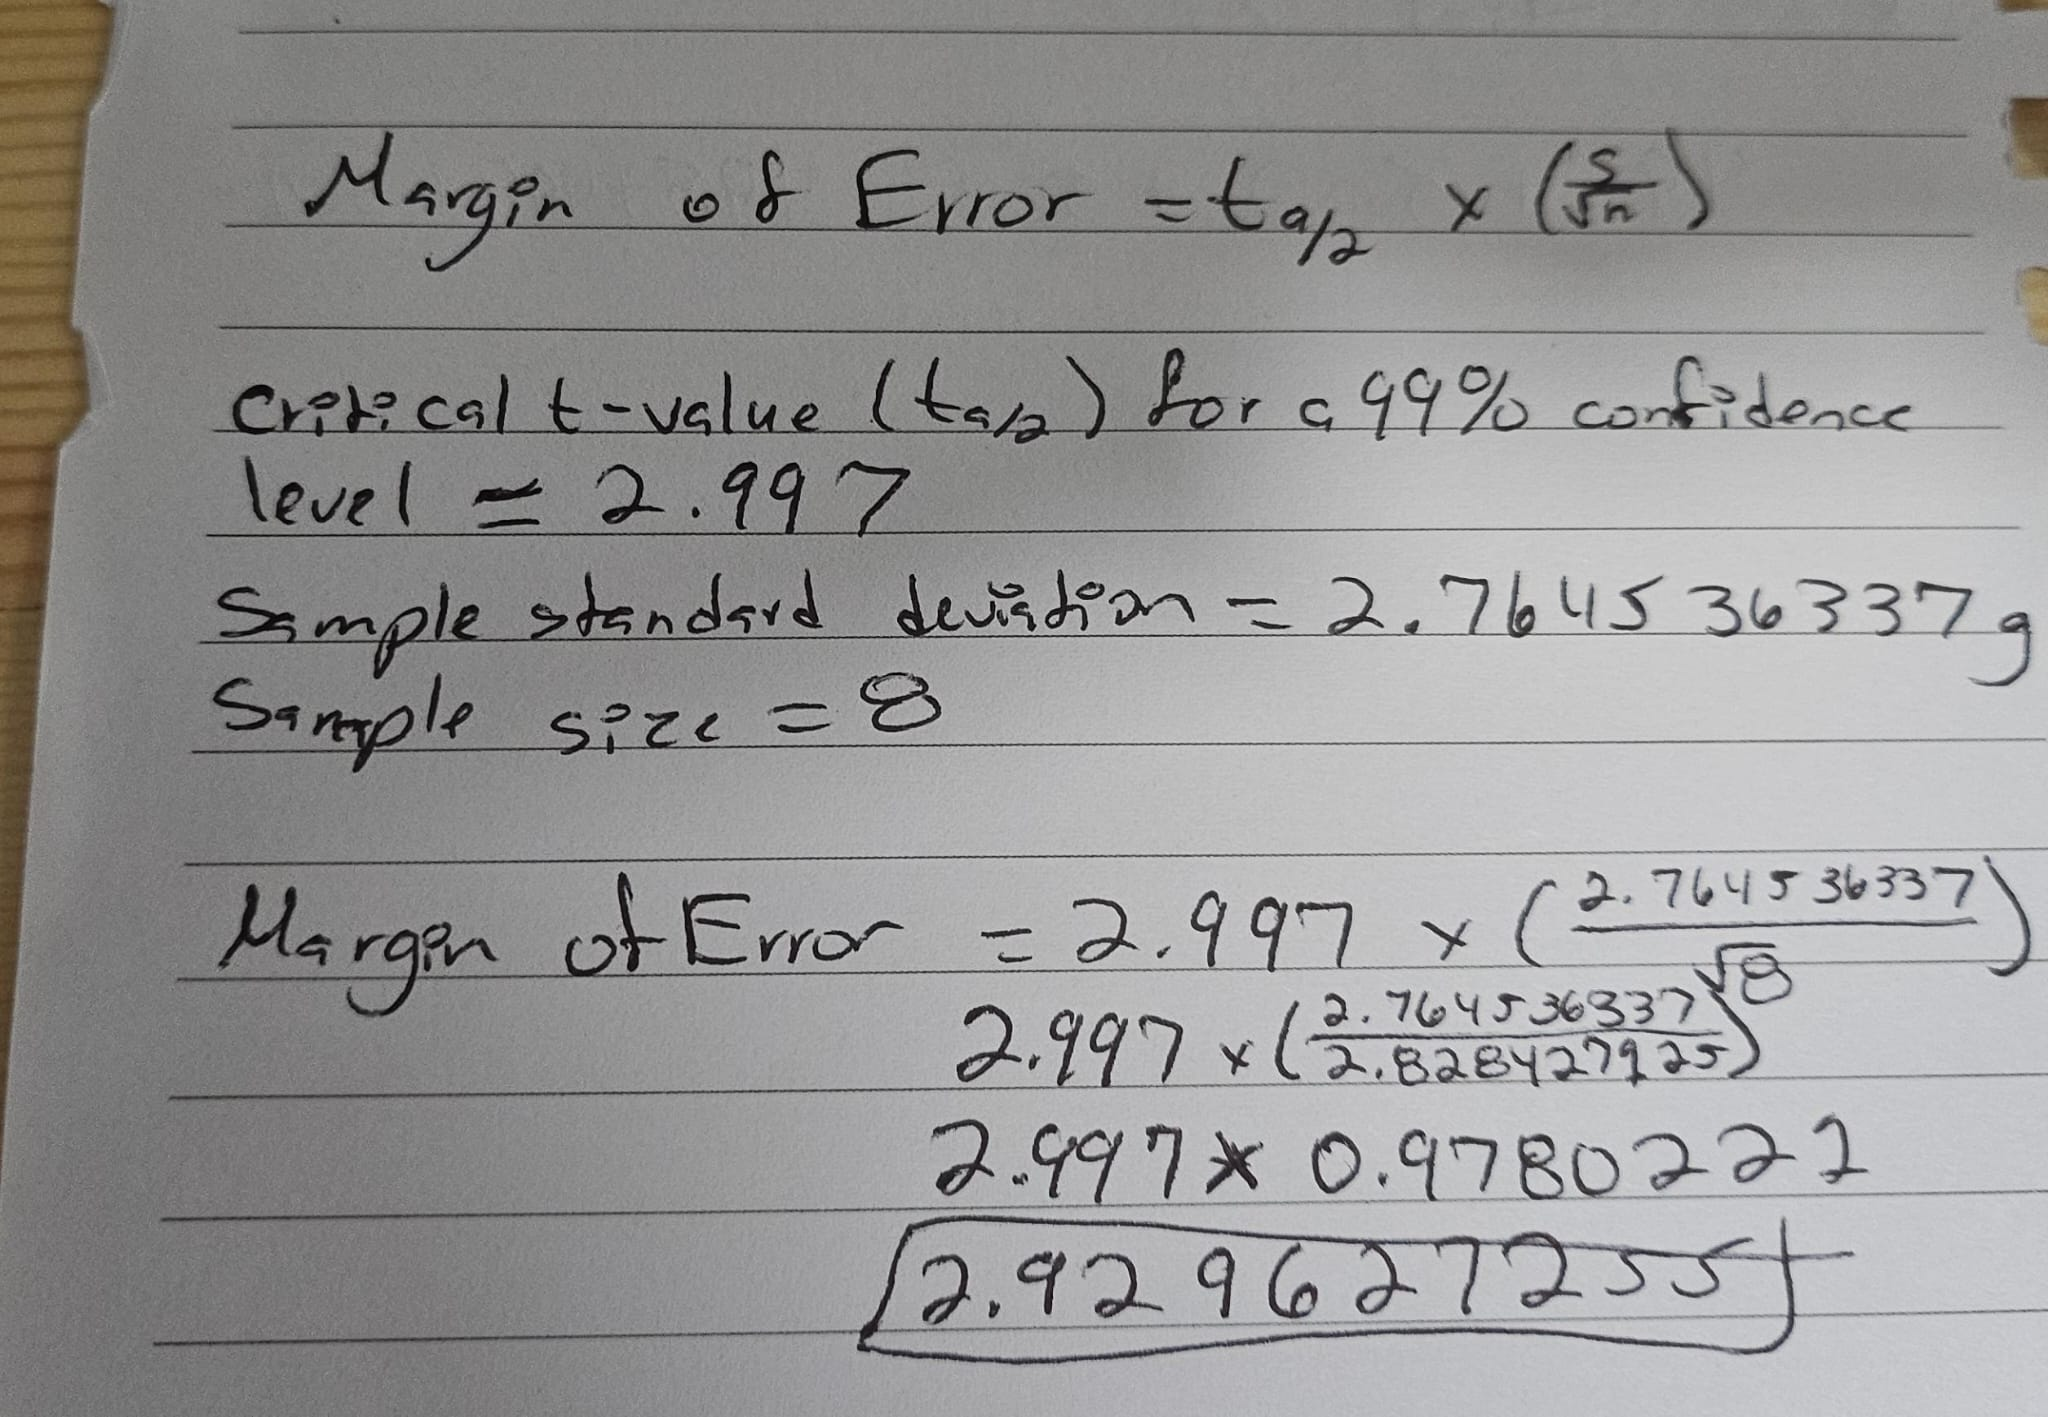 Margin of Error = tα/2 × (s/√n)
Critical t-value (tα/2) for a 99% confidence
level ≃ 2.997
Sample standard deviation = 2.764536337g
Sample size = 8
Margin of Error = 2.997 × (2.764536337/√8)
2.997 × (2.764536337/2.828427125)
2.997 × 0.9780222
2.929627255